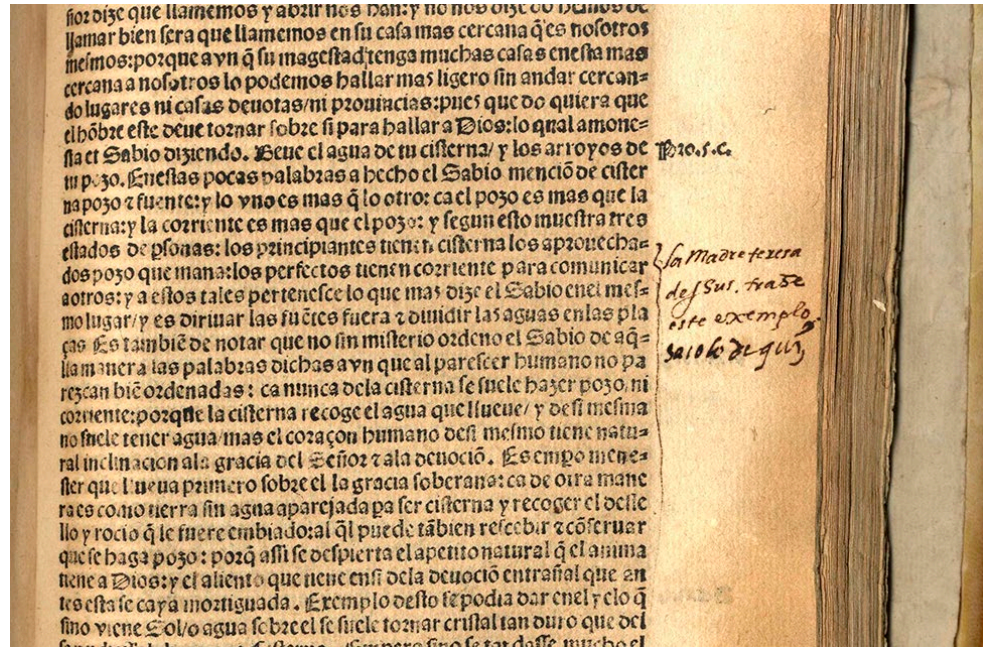 ñor dize que llamemos y abrir nos han: y no nos dize do
llamar bien sera que llamemos en su casa mas cercana q̃ es nosotros
mesmos: porque avn q̃ su magestad tenga muchas casas enesta mas
cercana a nosotros lo podemos hallar mas ligero sin andar cercan=
do lugares ni casas deuotas/ni prouincias: pues que do quiera que
el hõbre este deue tornar sobre si para hallar a Dios: lo qual amone=
sta el Sabio diziendo. Beue el agua de tu cisterna/ y los arroyos de
tu pozo. Enestas pocas palabras a hecho el Sabio menciõ de cister
na pozo ⁊ fuente: y lo vno es mas q̃ lo otro: ca el pozo es mas que la
cisterna: y la corriente es mas que el pozo: y segun esto muestra tres
estados de p̃sonas: los principiantes tienen cisterna los aprouecha=
dos pozo que mana: los perfectos tienen corriente para comunicar
a otros: y a estos tales pertenesce lo que mas dize el Sabio enel mes=
mo lugar/ y es diriuar las fuẽtes fuera ⁊ diuidir las aguas enlas pla
ças Es tambiẽ de notar que no sin misterio ordeno el Sabio de aq̃=
lla manera las palabras dichas avn que al parescer humano no pa
rezcan biẽ ordenadas: ca nunca dela cisterna se suele hazer pozo, ni
corriente: porque la cisterna recoge el agua que llueue/ y de si mesma
no suele tener agua/ mas el coraçon humano desi mesmo tiene natu=
ral inclinacion ala gracia del Señor ⁊ ala deuociõ. Es empo mene=
ster que llueua primero sobre el la gracia soberana: ca de otra mane
ra es como tierra sin agua aparejada pa ser cisterna y recoger el deste
llo y rocio q̃ le fuere embiado: al q̃l puede tãbien rescebir ⁊ cõseruar
que se haga pozo: porq̃ assi se despierta el apetito natural q̃ el anima
tiene a Dios: y el aliento que tiene ensi dela deuociõ entrañal que an
tes esta se caya mortiguada. Exemplo desto se podia dar enel yelo q̃
sino viene Sol/o agua sobre el se suele tornar cristal tan duro que del
Pro.5.c.
la Madre teresa
de jSus. trade
este exemplo.